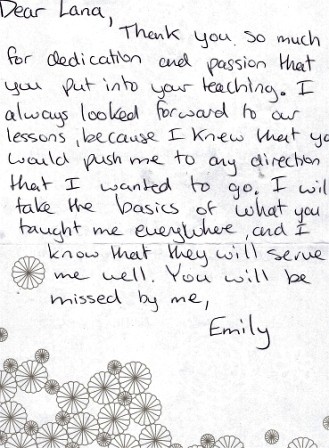 Dear Lana,
Thank you so much
for dedication and passion that
you put into your teaching. I
always looked forward to our
lessons, because I knew that yo
would push me to any direction
that I wanted to go. I wil
take the basics of what you
taught me everywhere, and I
know that they will serve
me well. You will be
missed by me,
Emily